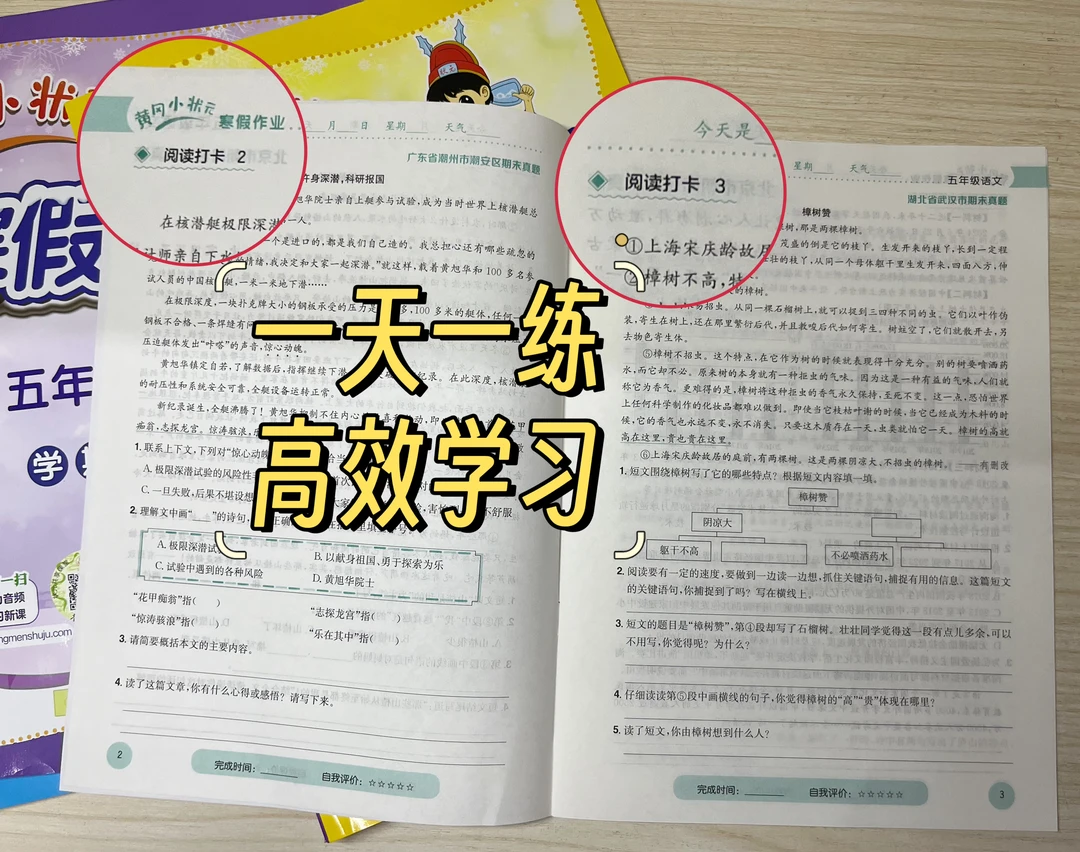 小状
寒假
五年
学
一扫
音频
习新课
ngmenshuju.com
黄冈小状元
寒假作业
月 日 星期 天气
阅读打卡 2
广东省潮州市潮安区期末真题
身深潜,科研报国
旭华院士亲自上艇参与试验,成为当时世界上核潜艇总
在核潜艇极限深潜 一人。
一个是进口的,都是我们自己造的。我总担心还有哪些疏忽的
计师亲自下水
情绪,我决定和大家一起深潜。”就这样,载着黄旭华和100多名参
试人员的中国核 艇,一米一米地下潜……
在极限深度,一块扑克牌大小的钢板承受的压力是 多,100多米的艇体,任何一
钢板不合格、一条焊缝有问
压迫艇体发出“咔嗒”的声音,惊心动魄。
黄旭华镇定自若,了解数据后,指挥继续下潜 纪录。在此深度,核潜
的耐压性和系统安全可靠,全艇设备运转正常。
新纪录诞生,全艇沸腾了!黄旭华抑制不住内心
痴翁,志探龙宫。惊涛骇浪,
1. 联系上下文,下列对“惊心动魄
A. 极限深潜试验的风险性
C. 一旦失败,后果不堪设想
不舒服
2. 理解文中画“ ”的诗句,
A. 极限深潜试
B. 以献身祖国、勇于探索为乐
C. 试验中遇到的各种风险
D. 黄旭华院士
“花甲痴翁”指( )
“志探龙宫”指( )
“惊涛骇浪”指( )
“乐在其中”指( )
3. 请简要概括本文的主要内容。
4. 读了这篇文章,你有什么心得或感悟?请写下来。
2
完成时间: 自我评价:☆☆☆☆☆
一天一练
高效学习
今天是
星期 天气
阅读打卡 3
五年级语文
湖北省武汉市期末真题
樟树赞
①上海宋庆龄故居
树,那是两棵樟树。
②樟树不高,壮
茂盛的倒是它的枝丫。生发开来的枝丫,长到一定程
壮的枝丫,从同一个母体躯干里生发开来,四面八方,伸
的樟树。
易招虫。从同一棵石榴树上,就可以捉到三四种不同的虫。它们以叶作伪
装,寄生在树上,还在那里繁衍后代,并且教唆后代如何寄生。树蛀空了,它们就散开去,另
去物色寄生体。
⑤樟树不招虫。这个特点,在它作为树的时候就表现得十分充分。别的树要喷洒药
水,而它却不必。原来树的本身就有一种拒虫的气味。因为这是一种有益的气味,人们就
称它为香气。更难得的是,樟树将这种拒虫的香气永久保持,至死不变。这一点,恐怕世界
上任何科学制作的化妆品都难以做到。即使当它枝枯叶谢的时候,当它已经成为木料的时
候,它的香气也永远不变,永不消失。只要这木质存在一天,虫类就怕它一天。樟树的高就
高在这里,贵也贵在这里。
⑥上海宋庆龄故居的庭前,有两棵树。这是两棵阴凉大、不招虫的樟树。 有删改
1. 短文围绕樟树写了它的哪些特点?根据短文内容填一填。
樟树赞
阴凉大
躯干不高
不必喷洒药水
2. 阅读要有一定的速度,要做到一边读一边想,抓住关键语句,捕捉有用的信息。这篇短文
的关键语句,你捕捉到了吗?写在横线上。
3. 短文的题目是“樟树赞”,第④段却写了石榴树。壮壮同学觉得这一段有点儿多余,可以
不用写,你觉得呢?为什么?
4. 仔细读读第⑤段中画横线的句子,你觉得樟树的“高”“贵”体现在哪里?
5. 读了短文,你由樟树想到什么人?
完成时间: 自我评价:☆☆☆☆☆
3